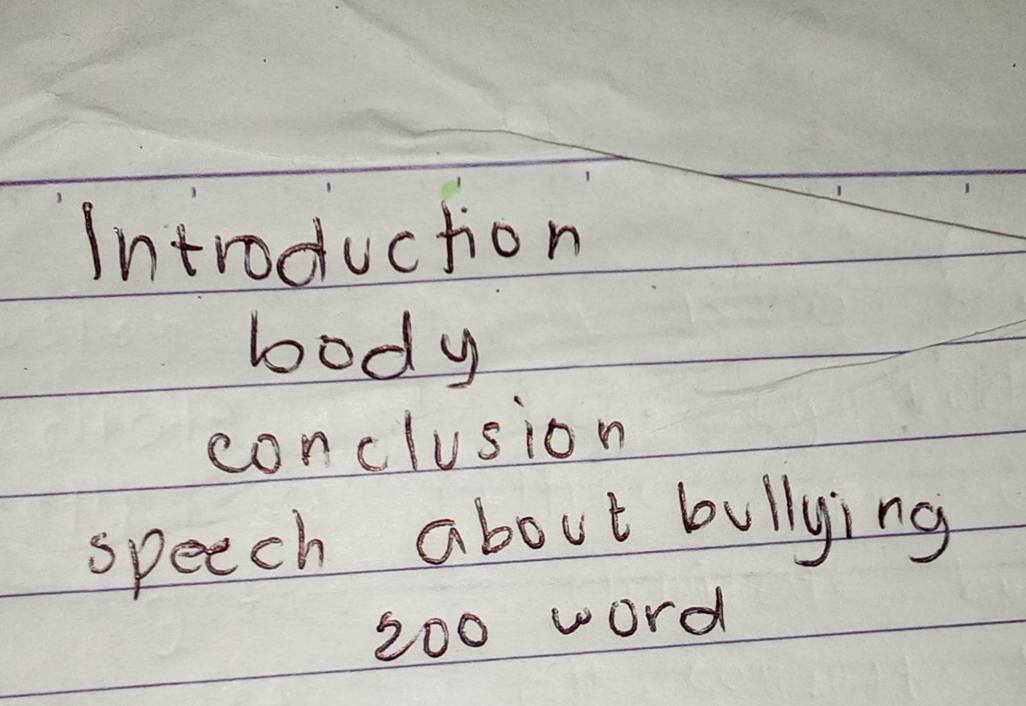 Introduction
body
conclusion
speech about bullying
200 word